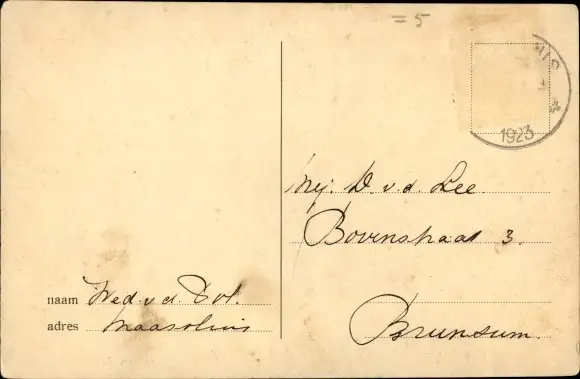 = 5
UIS
1923
Mej. D. v. d. Lee
Bovenstraat 3.
Brunsum.
naam Wed. v. d. Pol.
adres Maassluis